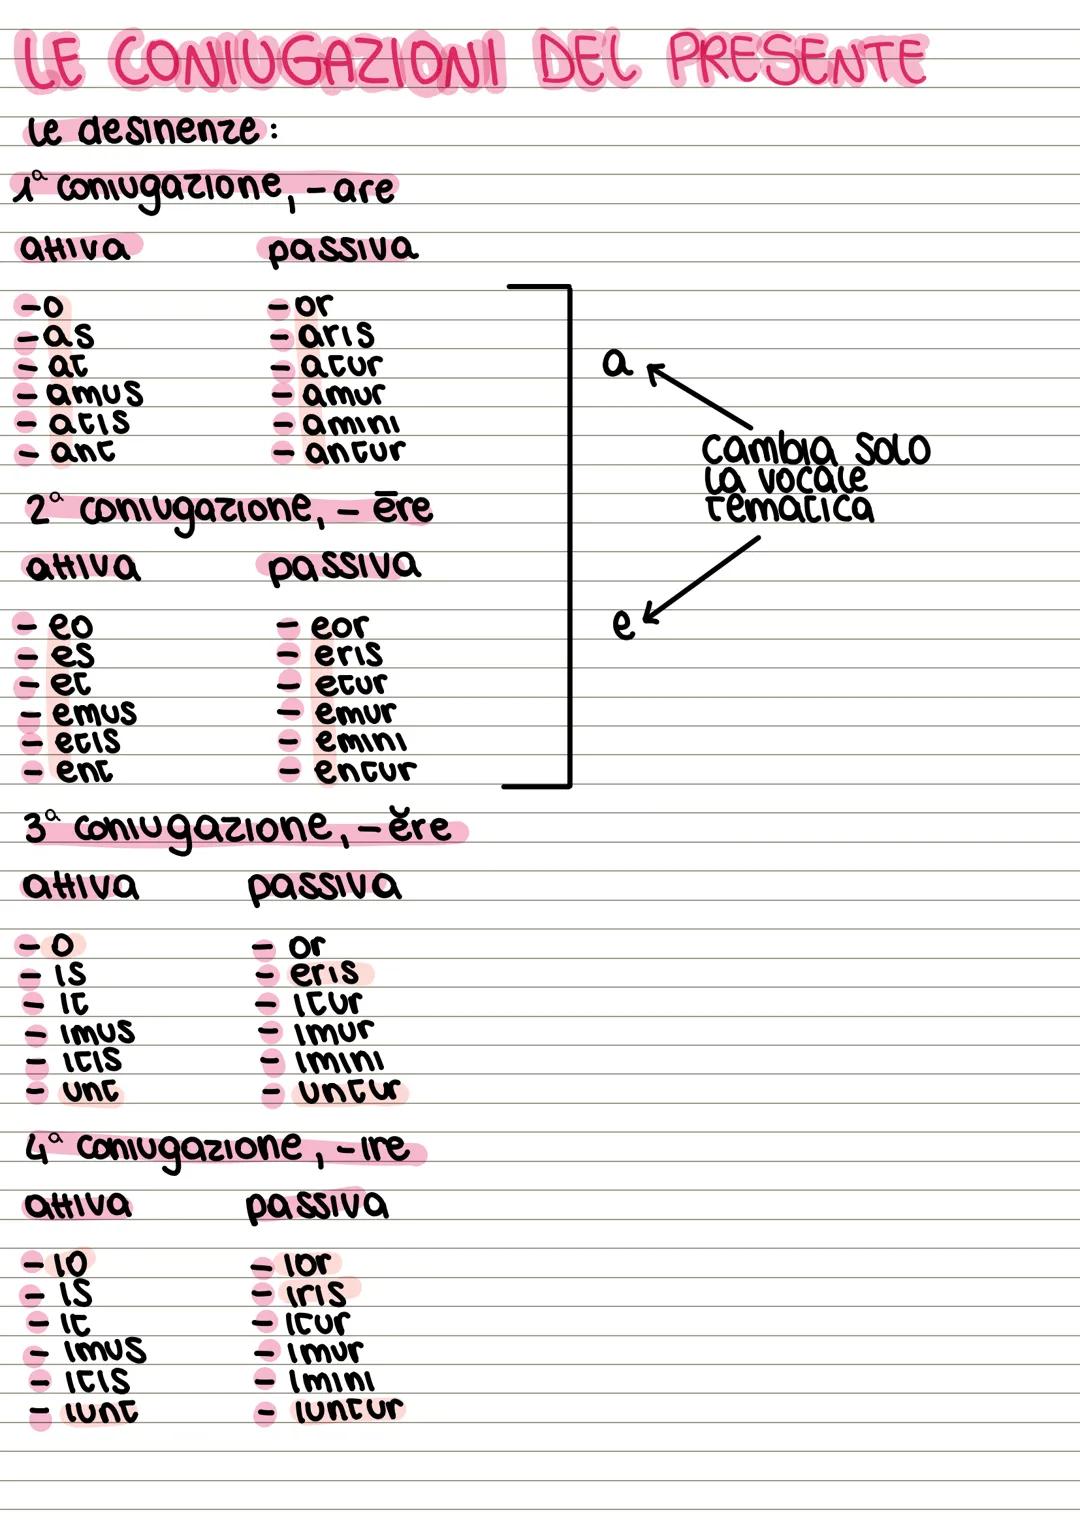 LE CONIUGAZIONI DEL PRESENTE
le desinenze:
1ª coniugazione, -are
attiva passiva
-o - or
-as - aris
- at - atur
- amus - amur
- atis - amini
- ant - antur
a
cambia solo
la vocale
tematica
e
2ª coniugazione, - ēre
attiva passiva
- eo - eor
- es - eris
- et - etur
- emus - emur
- etis - emini
- ent - entur
3ª coniugazione, - ĕre
attiva passiva
- o - or
- is - eris
- it - itur
- imus - imur
- itis - imini
- unt - untur
4ª coniugazione, - ire
attiva passiva
- io - ior
- is - iris
- it - itur
- imus - imur
- itis - imini
- iunt - iuntur